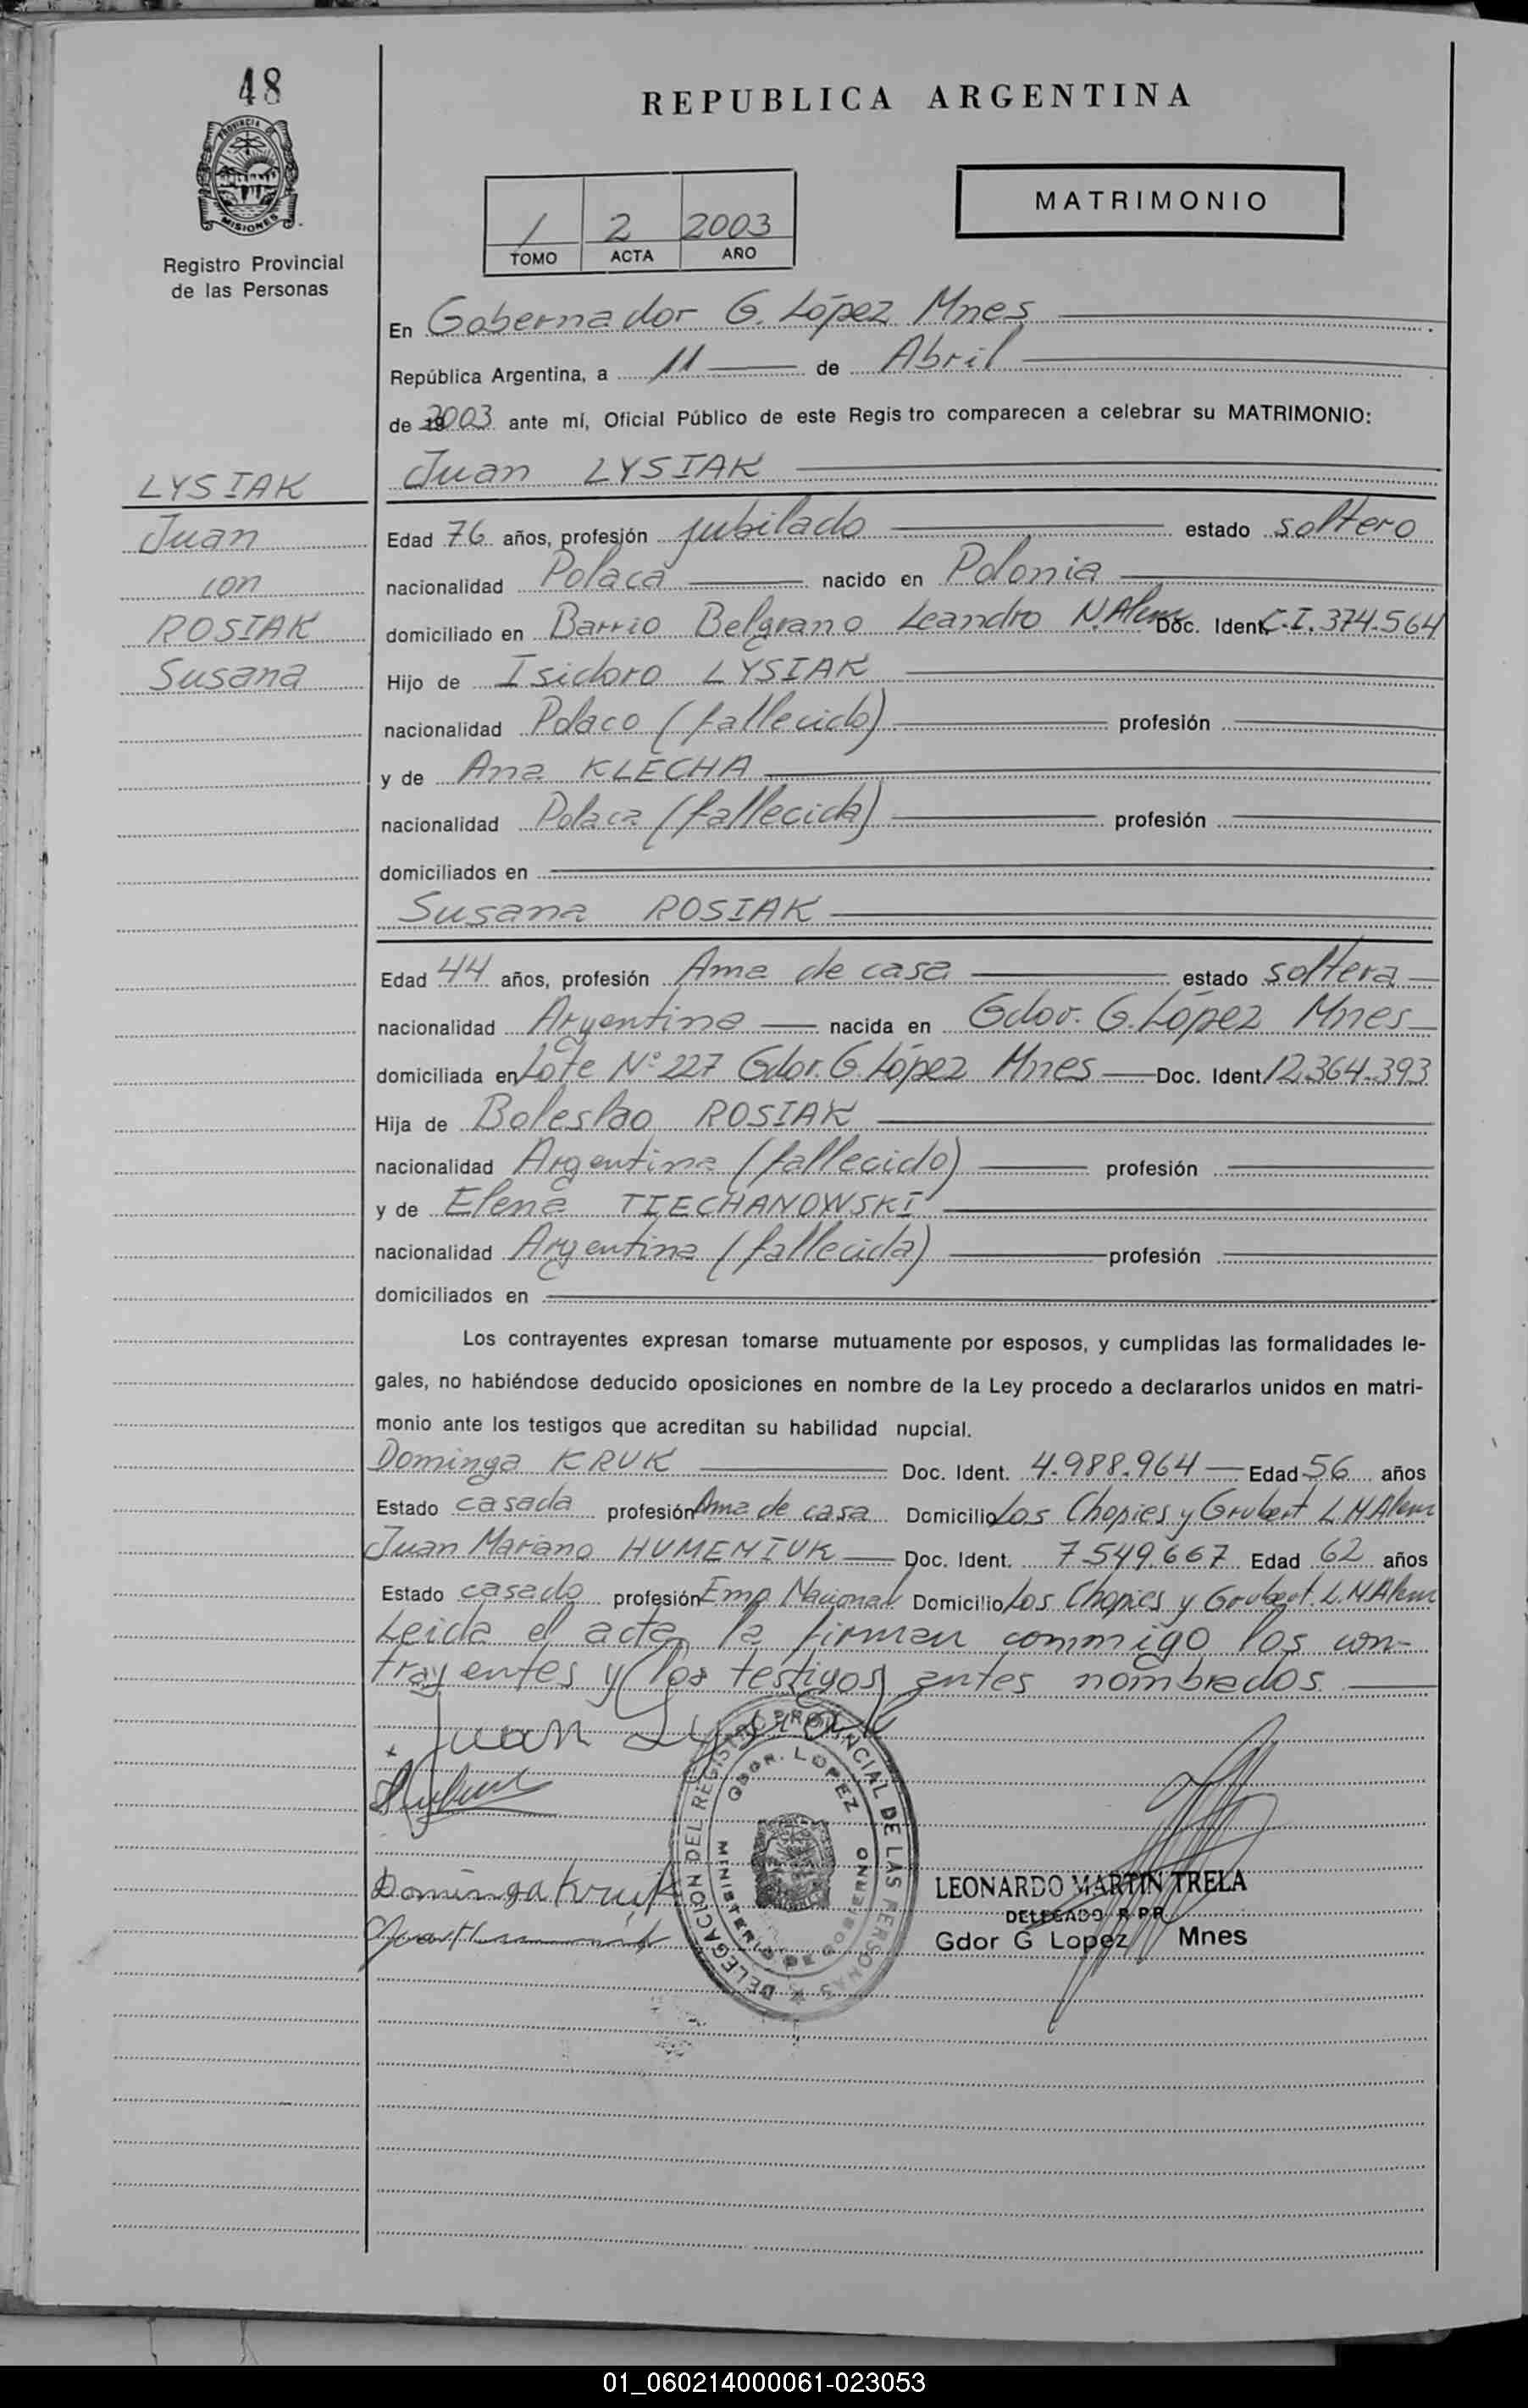 48
PROVINCIA DE
MISIONES
Registro Provincial
de las Personas
REPUBLICA ARGENTINA
MATRIMONIO
1 2 2003
TOMO ACTA AÑO
En Gobernador G. López Mnes
República Argentina, a 11 de Abril
de 2003 ante mí, Oficial Público de este Regis tro comparecen a celebrar su MATRIMONIO:
LYSIAK
Juan
con
ROSIAK
Susana
Juan LYSIAK
Edad 76 años, profesión jubilado estado soltero
nacionalidad Polaca nacido en Polonia
domiciliado en Barrio Belgrano Leandro N. Alem Doc. Ident. C.I. 374.564
Hijo de Isidoro LYSIAK
nacionalidad Polaco (fallecido) profesión
y de Ana KLECHA
nacionalidad Polaca (fallecida) profesión
domiciliados en
Susana ROSIAK
Edad 44 años, profesión Ama de casa estado soltera
nacionalidad Argentina nacida en Gdor. G. López Mnes
domiciliada en Lote Nº 227 Gdor. G. López Mnes Doc. Ident. 12.364.393
Hija de Boleslao ROSIAK
nacionalidad Argentina (fallecido) profesión
y de Elena TIECHANOWSKI
nacionalidad Argentina (fallecida) profesión
domiciliados en
Los contrayentes expresan tomarse mutuamente por esposos, y cumplidas las formalidades le-
gales, no habiéndose deducido oposiciones en nombre de la Ley procedo a declararlos unidos en matri-
monio ante los testigos que acreditan su habilidad nupcial.
Dominga KRUK Doc. Ident. 4.988.964 Edad 56 años
Estado casada profesión Ama de casa Domicilio Los Chopies y Grubert L N Alem
Juan Mariano HUMENIUK Doc. Ident. 7.549.667 Edad 62 años
Estado casado profesión Emp Nacional Domicilio Los Chopies y Grubert L.N Alem
Leida el acta, la firman conmigo los con-
trayentes y los testigos antes nombrados.
Juan Lysiak
Dominga Kruk
DELEGACION DEL REGISTRO PROVINCIAL DE LAS PERSONAS
GDOR. LOPEZ
MINISTERIO DE GOBIERNO
LEONARDO MARTIN TRELA
DELEGADO R.P.P.
Gdor G Lopez Mnes
01_060214000061-023053